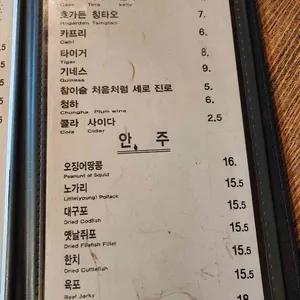 Cass Tera kelly
호가든 칭타오 7.
Hogarden Tsingtao
카프리 6.
Cafri
타이거 8.
Tiger
기네스 9.
Guiness
참이슬 처음처럼 새로 진로 5.
청하 6.
Chungha Plum wine
콜라 사이다 2.5
Cola Cider
안 주
오징어땅콩 16.
Peanunt of Squid
노가리 15.5
Little(young) Pollack
대구포 15.5
Dried Codfish
옛날쥐포 15.5
Dried Filefish Fillet
한치 15.5
Dried Cuttlefish
육포 18
Beef Jerky